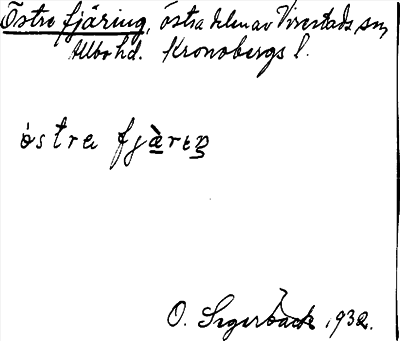 Östre fjäring, östra delen av Virestads sn,
Allbo hd. Kronobergs l.
östra fjären
O. Segerbäck 1932.